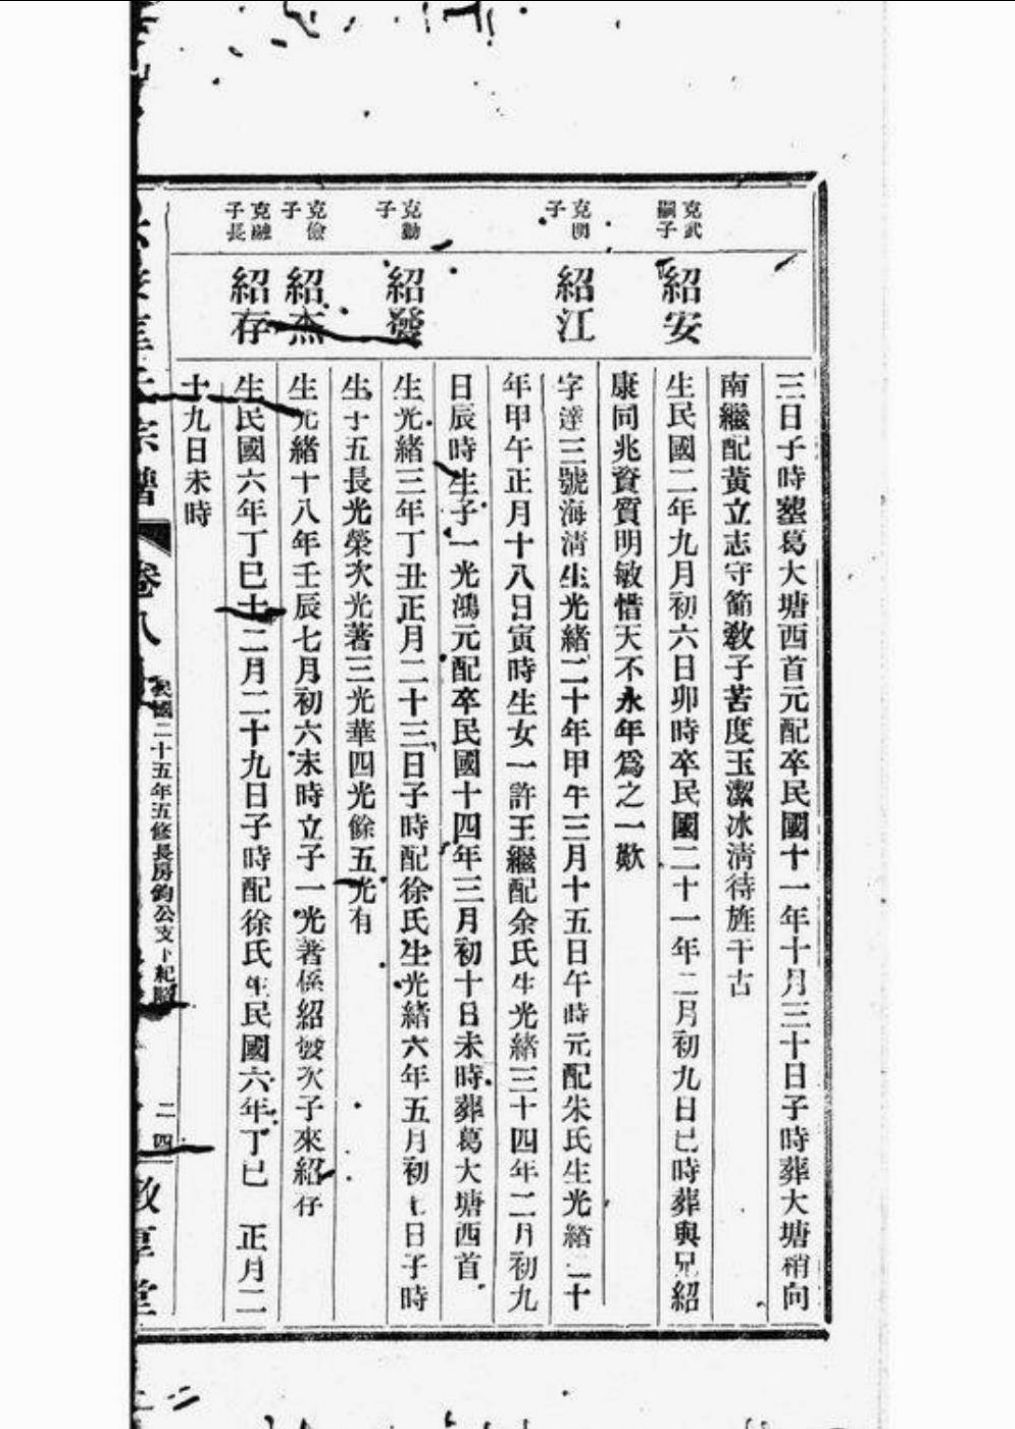 三日子時塟葛大塘西首元配卒民國十一年十月三十日子時葬大塘稍向
南繼配黃立志守節敎子苦度玉潔冰淸待旌千古
克武
嗣子
紹安
生民國二年九月初六日卯時卒民國二十一年二月初九日巳時葬與兄紹
康同兆資質明敏惜天不永年爲之一歎
克明
子
紹江
字達三號海清生光緒二十年甲午三月十五日午時元配朱氏生光緒二十
年甲午正月十八日寅時生女一許王繼配余氏生光緒三十四年二月初九
日辰時生子一光鴻元配卒民國十四年三月初十日未時葬葛大塘西首
克勤
子
紹發
生光緒三年丁丑正月二十三日子時配徐氏生光緒六年五月初七日子時
生子五長光榮次光著三光華四光餘五光有
克儉
子
紹杰
生光緒十八年壬辰七月初六未時立子一光著係紹發次子來紹仔
克融
子長
紹存
生民國六年丁巳十二月二十九日子時配徐氏生民國六年丁巳 正月二
十九日未時
宗譜
卷八
民國二十五年五修長房鈞公支下紀
二四
敦厚堂